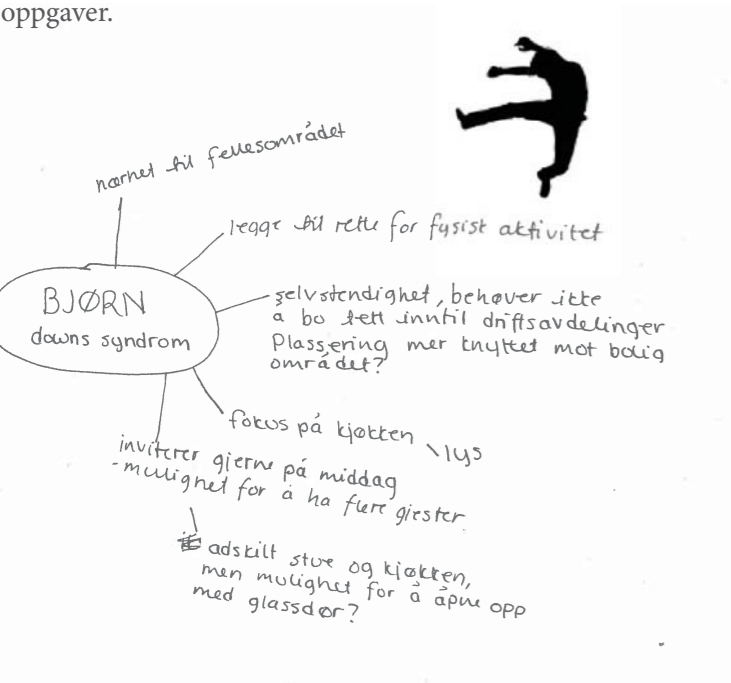 oppgaver.
nærhet til fellesområdet
legge til rette for fysisk aktivitet
BJØRN
downs syndrom
selvstendighet, behøver ikke
å bo tett inntil driftsavdelinger
Plassering mer knyttet mot bolig
området?
fokus på kjøkken
lys
inviterer gjerne på middag
- mulighet for å ha flere gjester
adskilt stue og kjøkken,
men mulighet for å åpne opp
med glassdør?